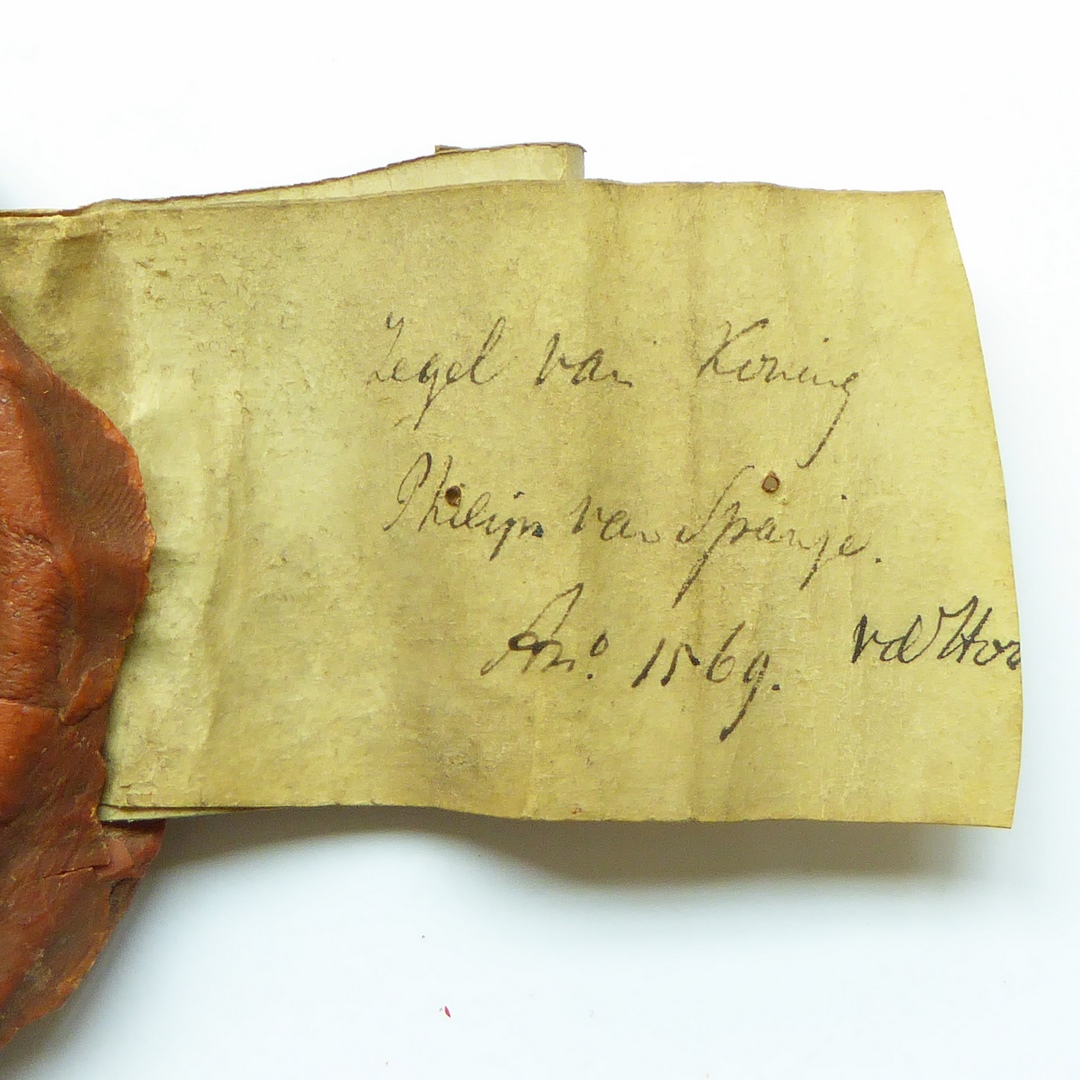 Zegel van Koning
Philips van Spanje.
Ano. 1569. vdHor